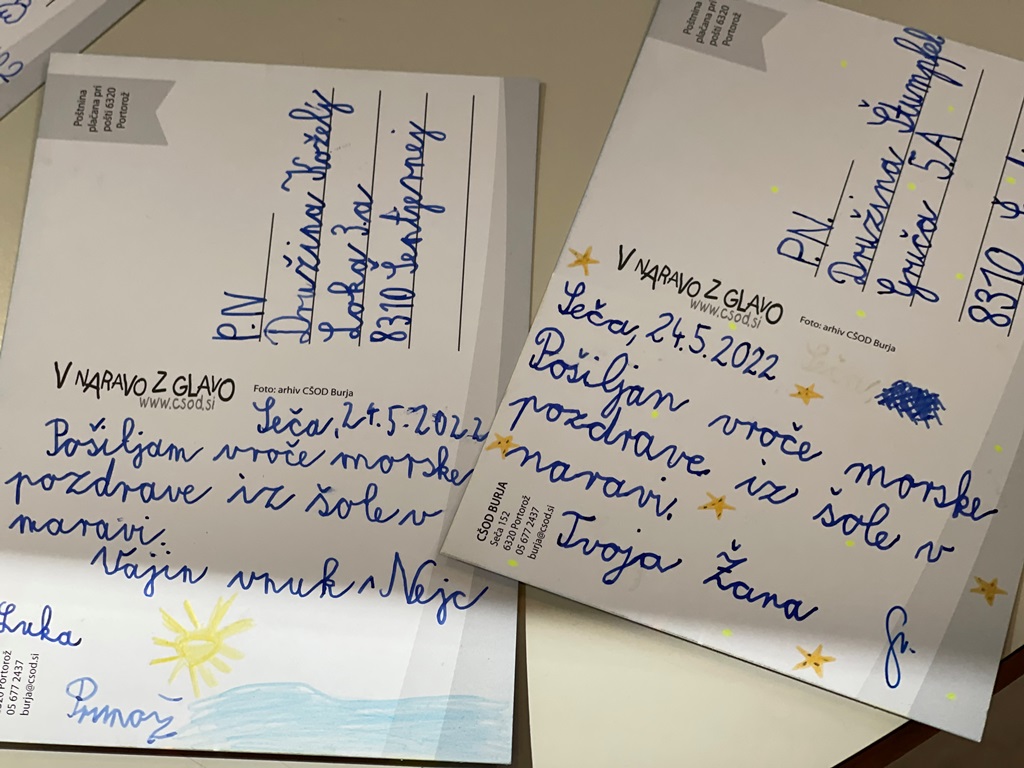 Poštnina
plačana pri
pošti 6320
Portorož
P.N
Družina Koželj
Loka 3.a
8310 Šentjernej
V NARAVO Z GLAVO
www.csod.si
Foto: arhiv CŠOD Burja
Seča, 24.5.2022
Pošiljam vroče morske
pozdrave iz šole v
naravi.
Vajin vnuk Nejc
Luka
Primož
6320 Portorož
05 677 2437
burja@csod.si
Poštnina
plačana pri
pošti 6320
Portorož
P.N.
Družina Štumpfel
Griča 5.A
8310
V NARAVO Z GLAVO
www.csod.si
Foto: arhiv CŠOD Burja
Seča, 24.5.2022
Pošiljam vroče morske
pozdrave iz šole v
naravi.
Tvoja Žana
CŠOD BURJA
Seča 152
6320 Portorož
05 677 2437
burja@csod.si